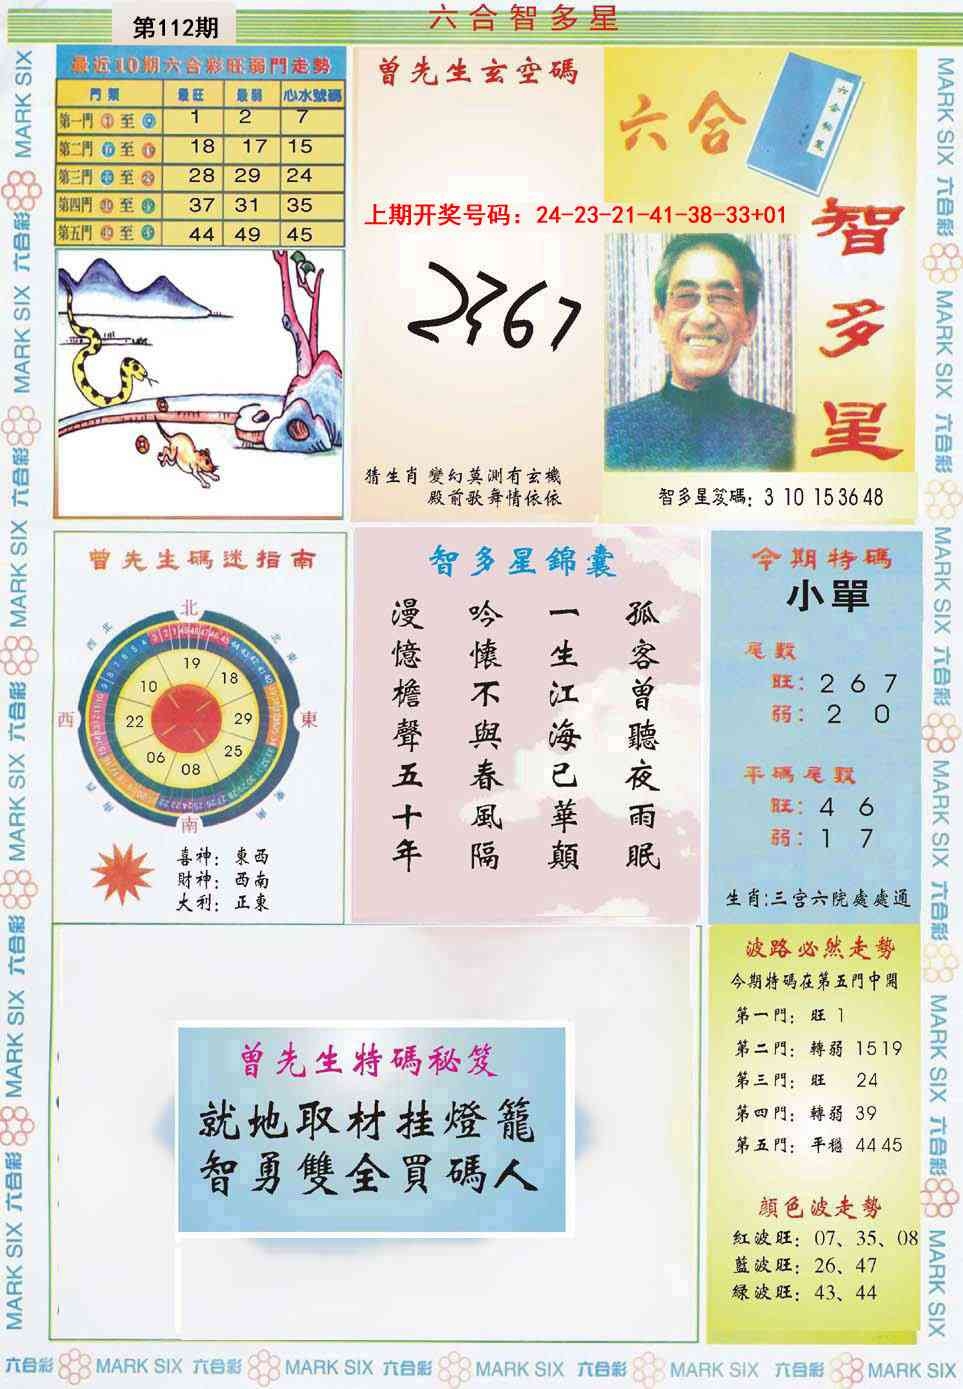 六合智多星
第112期
最近10期六合彩旺弱門走勢
門類 最旺 最弱 心水號碼
第一門 至 1 2 7
第二門 至 18 17 15
第三門 至 28 29 24
第四門 至 37 31 35
第五門 至 44 49 45
曾先生玄空碼
上期开奖号码：24-23-21-41-38-33+01
2367
猜生肖 變幻莫測有玄機
殿前歌舞情依依
六合
智多星
智多星笈碼：3 10 15 36 48
曾先生碼迷指南
北
西北
東北
西
東
西南
東南
南
19
18
29
25
08
06
22
10
喜神：東西
財神：西南
大利：正東
智多星錦囊
孤客曾聽夜雨眠
一生江海已華顛
吟懷不與春風隔
漫憶檐聲五十年
今期特碼
小單
尾數
旺：2 6 7
弱：2 0
平碼尾數
旺：4 6
弱：1 7
生肖:三宫六院處處通
曾先生特碼秘笈
就地取材挂燈籠
智勇雙全買碼人
波路必然走勢
今期特碼在第五門中開
第一門：旺 1
第二門：轉弱 15 19
第三門：旺 24
第四門：轉弱 39
第五門：平穩 44 45
顔色波走勢
紅波旺：07、35、08
藍波旺：26、47
緑波旺：43、44
MARK SIX 六合彩 MARK SIX 六合彩 MARK SIX 六合彩 MARK SIX 六合彩 MARK SIX 六合彩 MARK SIX
MARK SIX 六合彩 MARK SIX 六合彩 MARK SIX 六合彩 MARK SIX 六合彩 MARK SIX 六合彩 MARK SIX
六合彩 MARK SIX 六合彩 MARK SIX 六合彩 MARK SIX 六合彩 MARK SIX 六合彩 MARK SIX